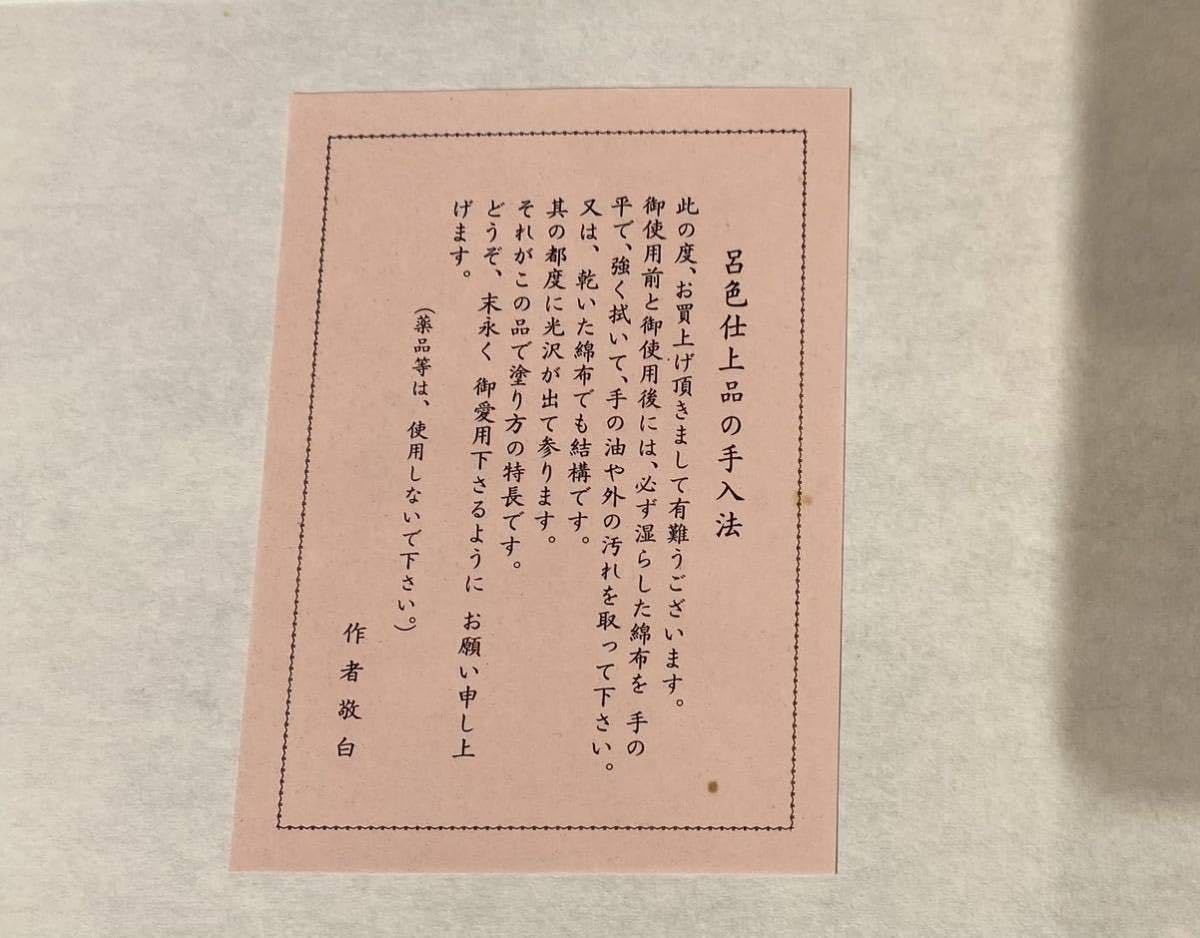 呂色仕上品の手入法
此の度、お買上げ頂きまして有難うございます。
御使用前と御使用後には、必ず湿らした綿布を 手の
平で、強く拭いて、手の油や外の汚れを取って下さい。
又は、乾いた綿布でも結構です。
其の都度に光沢が出て参ります。
それがこの品で塗り方の特長です。
どうぞ、末永く 御愛用下さるように お願い申し上
げます。
(薬品等は、使用しないで下さい。)
作者敬白